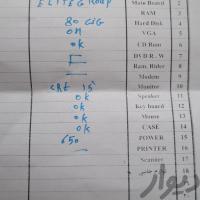 ELITE Group Main Board 1
RAM 2
80 GIG Hard Disk 3
on VGA 4
ok CD Rom 5
DVD R.. W 6
Ram. Rider 8
Modem 9
CRT 15" Monitor 10
ok Speaker 11
ok Key board 12
ok Mouse 13
ok CASE 14
650 POWER 15
PRINTER 16
Scanner 17
18
دیوار